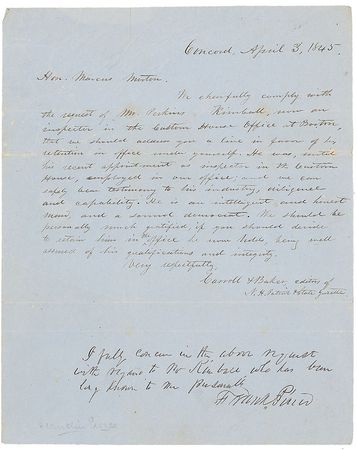 Concord, April 3, 1845.
Hon. Marcus Morton.
We cheerfully comply with
the request of Mr. Perkins Kimball, now an
inspector in the Custom House Office at Boston,
that we should address you a line in favor of his
retention in office under yourself. He was, until
his recent appointment as inspector in the Custom
House, employed in our office, and we can
safely bear testimony to his industry, diligence
and capability. He is an intelligent and honest
man, and a sound democrat. We should be
personally much gratified, if you should decide
to retain him in the office he now holds, being well
assured of his qualifications and integrity.
Very respectfully,
Carroll & Baker, editors of
N. H. Patriot & State Gazette
I fully concur in the above request
with regard to Mr Kimball who has been
long known to me personally
Frank. Pierce
Franklin Pierce